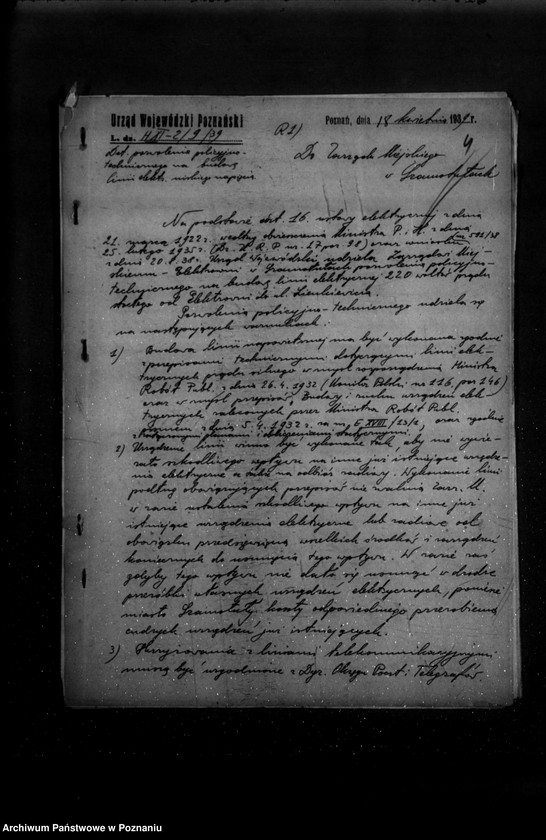 Urząd Wojewódzki Poznański
L. dz. H XI-2/9/39
Poznań, dnia 18 kwietnia 1939 r.
Dot. pozwolenia policyjno-
technicznego na budowę
linii elektr. niskiego napięcia
Do Zarządu Miejskiego
w Szamotułach
Na podstawie art. 16 ustawy elektrycznej z dnia
21. marca 1922 r. według obwieszczenia Ministra P. i H. z dnia
25. lutego 1935 r. (Dz. U. R. P. nr. 17 poz. 98) oraz
z dnia 20. Urząd Wojewódzki udziela Zarządowi Miej-
skiemu - Elektrowni w Szamotułach pozwolenia policyjno-
technicznego na budowę linii elektrycznej 220 wolt prądu
stałego od Elektrowni do ul. Sienkiewicza.
Pozwolenia policyjno-technicznego udziela się
na następujących warunkach:
1) Budowa linii napowietrznej ma być wykonana zgodnie
z przepisami technicznymi dotyczącymi linii elek-
trycznych prądu silnego w myśl rozporządzenia Ministra
Robót Publ. z dnia 26. 4. 1932 (Monitor Polski nr 116, poz. 146)
oraz w myśl przepisów Budowy i ruchu urządzeń elek-
trycznych zaleconych przez Ministra Robót Publ.
pismem z dnia 5. 4. 1932 r. za nr. XVIII/23/2, oraz zgodnie
z
2) Urządzenie linii winno być wykonane tak, aby nie wywie-
rało szkodliwego wpływu na inne już istniejące urządze-
nia elektryczne a także na odbiór radiowy. Wykonanie linii
podług obowiązujących przepisów nie zwalnia Zarz. M.
w razie ustalenia szkodliwego wpływu na inne już
istniejące urządzenia elektryczne lub radiowe od
obowiązku przedsięwzięcia wszelkich środków i zarządzeń
koniecznych do usunięcia tego wpływu. W razie zaś
gdyby tego wpływu nie dało się usunąć w drodze
przeróbki własnych urządzeń elektrycznych, poniesie
miasto Szamotuły koszty odpowiedniego przerobienia
cudzych urządzeń już istniejących.
3) Skrzyżowania z liniami telekomunikacyjnymi
muszą być uzgodnione z Dyr. Okręgu Poczt i Telegrafów
Archiwum Państwowe w Poznaniu